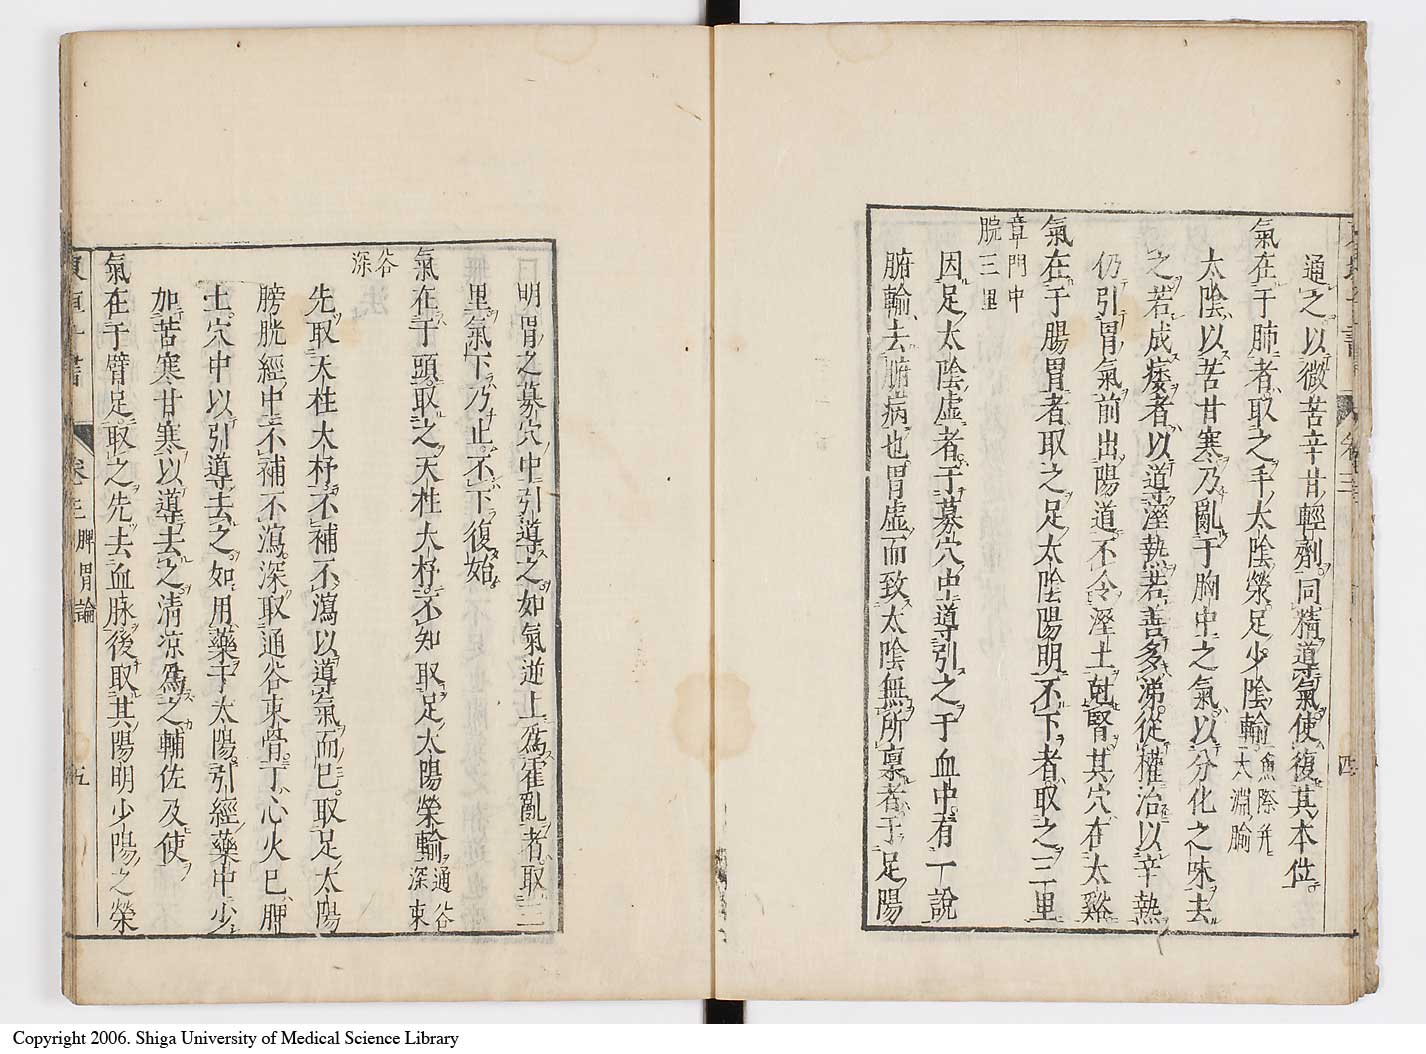 通之以微苦辛甘輕劑同精導氣使復其本位
氣在于肺者取之手太陰滎足少陰輸魚際并太淵腧
太陰以苦甘寒乃亂于胸中之氣以分化之味去
之若成痿者以導溼熱若善多涕從權治以辛熱
仍引胃氣前出陽道不令溼土尅腎其穴在太谿
氣在于腸胃者取之足太陰陽明不下者取之三里
章門中脘三里
因足太陰虛者于募穴中導引之于血中有一說
腑輸去腑病也胃虛而致太陰無所稟者于足陽
明胃之募穴中引導之如氣逆上爲霍亂者取三
里氣下乃止不下復始
氣在于頭取之天柱大杼不知取足太陽滎輸通谷深束
谷深
先取天柱大杼不補不瀉以導氣而已取足太陽
膀胱經中不補不瀉深取通谷束骨丁心火己脾
土穴中以引導去之如用藥于太陽引經藥中少
加苦寒甘寒以導去之清涼爲之輔佐及使
氣在于臂足取之先去血脉後取其陽明少陽之滎
卷三 脾胃論
五
四
Copyright 2006. Shiga University of Medical Science Library